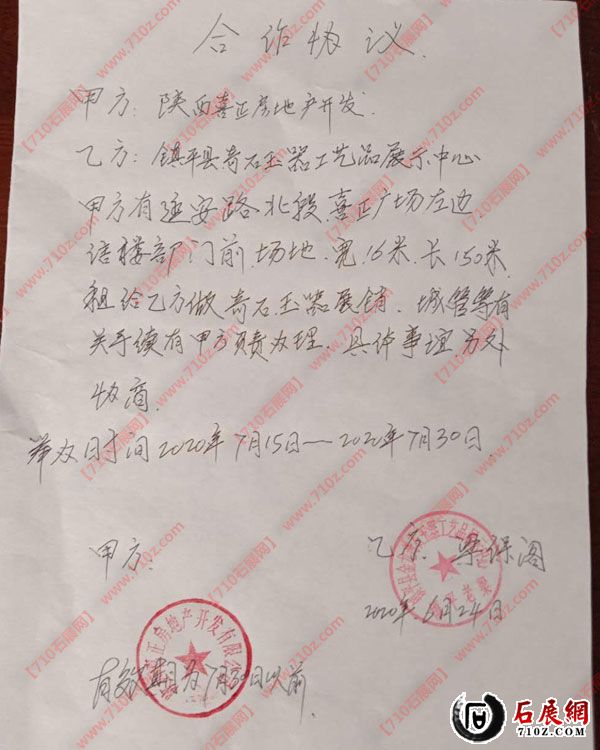 合作协议.
甲方: 陕西喜正房地产开发.
乙方: 镇平县奇石玉器工艺品展示中心
甲方有延安路北段喜正广场左边
售楼部门前.场地.宽16米.长150米.
租给乙方做奇石玉器展销.城管等有
关手续有甲方负责办理.具体事谊另外
协商.
举办时间2020年7月15日—2020年7月30日
甲方:
乙方: 梁保阁
2020年6月24日
正房地产开发有限公
有效期为7月30日以前.
【710石展网】www.710z.com
石展網
710Z.COM